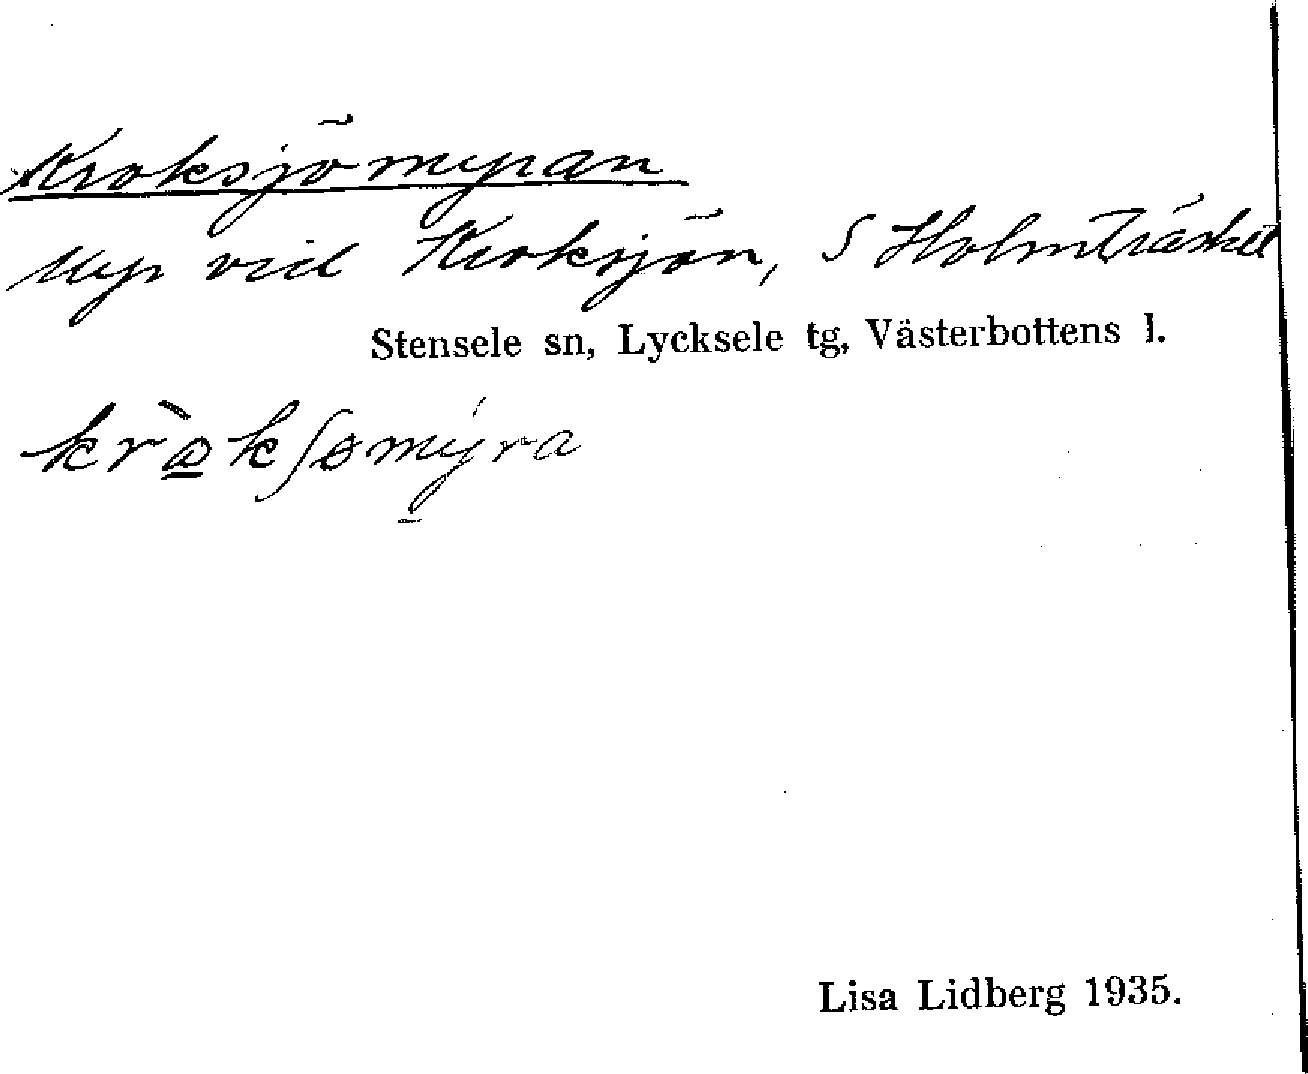 Kroksjömyran
Myr vid Kroksjön, S Holmträsket
Stensele sn, Lycksele tg, Västerbottens l.
Lisa Lidberg 1935.